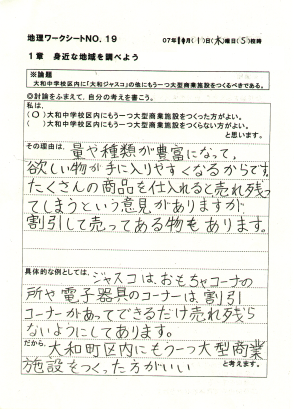 地理ワークシートNO．19
07年10月(1)日(木)曜日(5)校時
1章 身近な地域を調べよう
※論題
大和中学校区内に「大和ジャスコ」の他にもう一つ大型商業施設をつくるべきである。
◎討論をふまえて，自分の考えを書こう。
私は，
（○）大和中学校区内にもう一つ大型商業施設をつくった方がよい。
（　）大和中学校区内にもう一つ大型商業施設をつくらない方がよい。
と思います。
その理由は，
量や種類が豊富になって，
欲しい物が手に入りやすくなるからです。
たくさんの商品を仕入れると売れ残っ
てしまうという意見がありますが
割引して売ってある物もあります。
具体的な例としては，
ジャスコは、おもちゃコーナーの
所や電子器具のコーナーは、割引
コーナーがあってできるだけ売れ残ら
ないようにしてあります。
だから，
大和町区内にもう一つ大型商業
施設をつくった方がいい
と考えます。